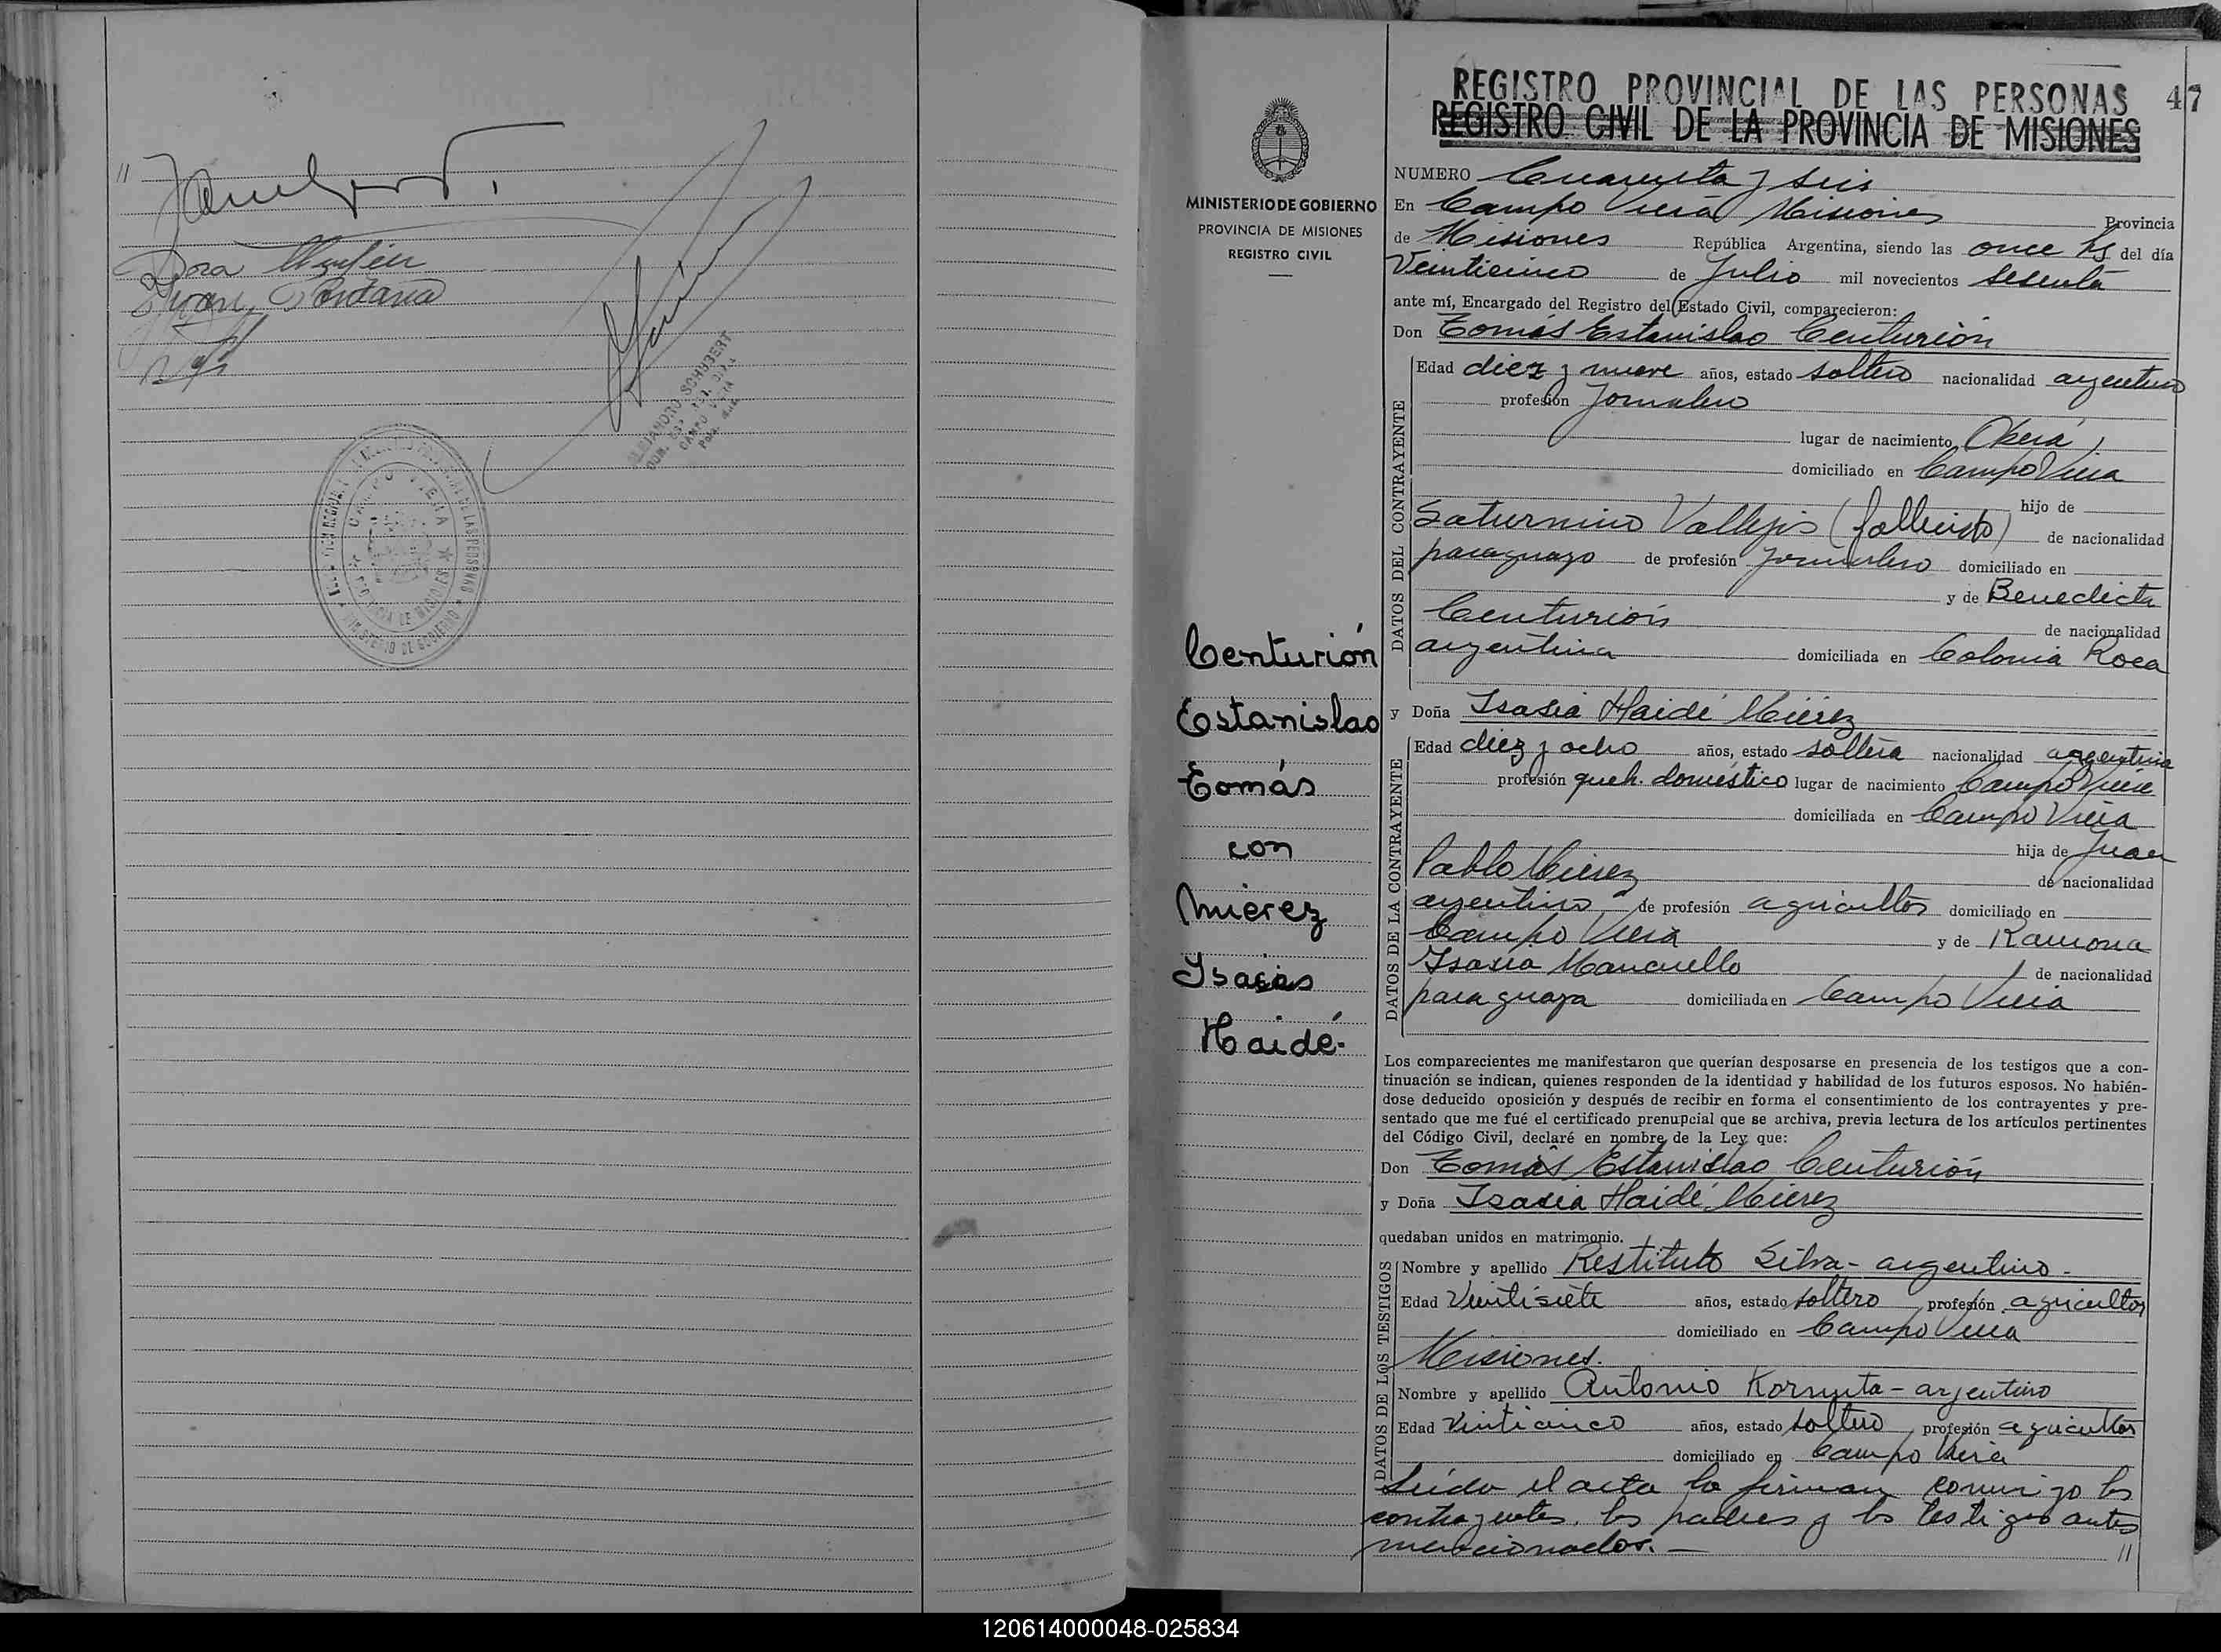 "
Dora
Juan
ALEJANDRO SCHUBERT
CAMPO VIERA
MINISTERIO DE GOBIERNO
PROVINCIA DE MISIONES
REGISTRO CIVIL
Centurión
Estanislao
Tomás
con
Mierez
Isasia
Haidé.
REGISTRO PROVINCIAL DE LAS PERSONAS 47
REGISTRO CIVIL DE LA PROVINCIA DE MISIONES
NUMERO Cuarenta y seis
En Campo Viera Misiones Provincia
de Misiones República Argentina, siendo las once hs del día
Veinticinco de Julio mil novecientos sesenta
ante mí, Encargado del Registro del Estado Civil, comparecieron:
Don Tomás Estanislao Centurión
DATOS DEL CONTRAYENTE
Edad diez y nueve años, estado soltero nacionalidad argentino
profesión Jornalero
lugar de nacimiento Oberá
domiciliado en Campo Viera
hijo de
Saturnino Vallejos (fallecido) de nacionalidad
paraguayo de profesión jornalero domiciliado en
y de Benedicta
Centurión de nacionalidad
argentina domiciliada en Colonia Roca
y Doña Isasia Haidé Mierez
DATOS DE LA CONTRAYENTE
Edad diez y ocho años, estado soltera nacionalidad argentina
profesión queh. doméstico lugar de nacimiento Campo Viera
domiciliada en Campo Viera
hija de Juan
Pablo Mierez de nacionalidad
argentino de profesión agricultor domiciliado en
Campo Viera y de Ramona
Isasia Mancuello de nacionalidad
paraguaya domiciliada en Campo Viera
Los comparecientes me manifestaron que querían desposarse en presencia de los testigos que a con-
tinuación se indican, quienes responden de la identidad y habilidad de los futuros esposos. No habién-
dose deducido oposición y después de recibir en forma el consentimiento de los contrayentes y pre-
sentado que me fué el certificado prenupcial que se archiva, previa lectura de los artículos pertinentes
del Código Civil, declaré en nombre de la Ley que:
Don Tomás Estanislao Centurión
y Doña Isasia Haidé Mierez
quedaban unidos en matrimonio.
DATOS DE LOS TESTIGOS
Nombre y apellido Restituto Silva - argentino -
Edad Veintisiete años, estado soltero profesión agricultor
domiciliado en Campo Viera
Misiones.
Nombre y apellido Antonio Kornuta - argentino
Edad Veinticinco años, estado soltero profesión agricultor
domiciliado en Campo Viera
Leída el acta la firman conmigo los
contrayentes, los padres y los testigos antes
mencionados. — "
120614000048-025834